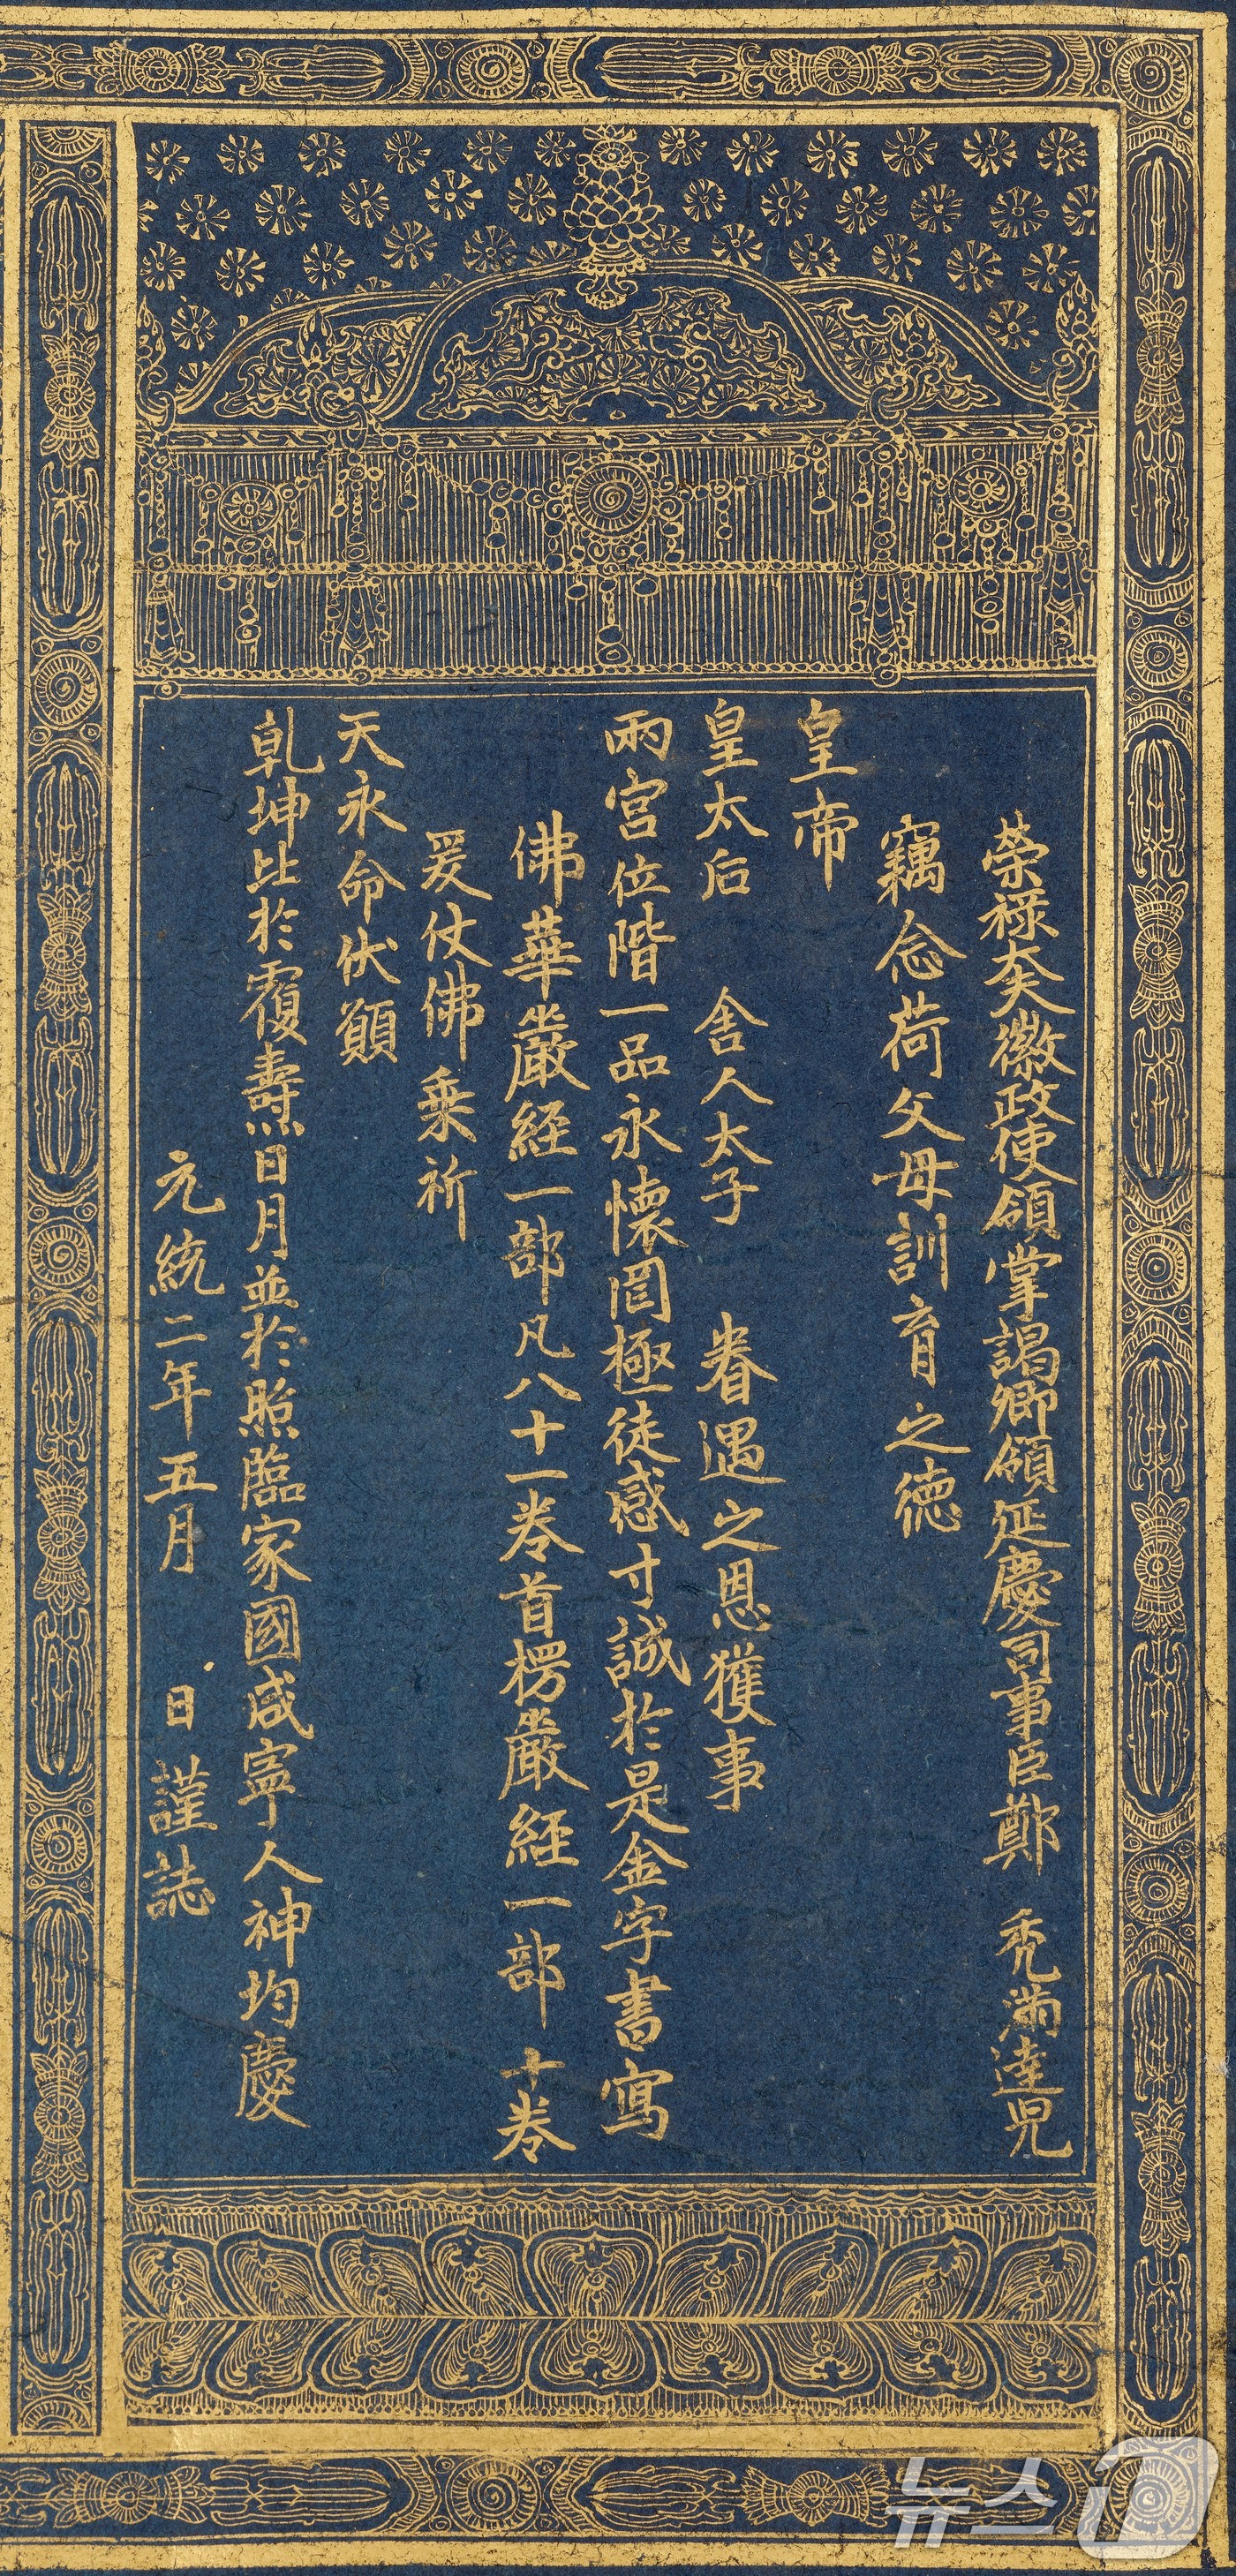 榮禄大夫徽政使領掌謁卿領延慶司事臣鄭 禿滿達児
竊念荷父母訓育之德
皇帝
皇太后 舍人太子 眷遇之恩獲事
兩宮位階一品永懷罔極徒感寸誠於是金字書寫
佛華嚴経一部凡八十一卷首楞嚴経一部 十卷
爰仗佛乗祈
天永命伏願
乹坤比於覆燾日月並於照臨家國咸寧人神均慶
元統二年五月 日謹誌
뉴스1